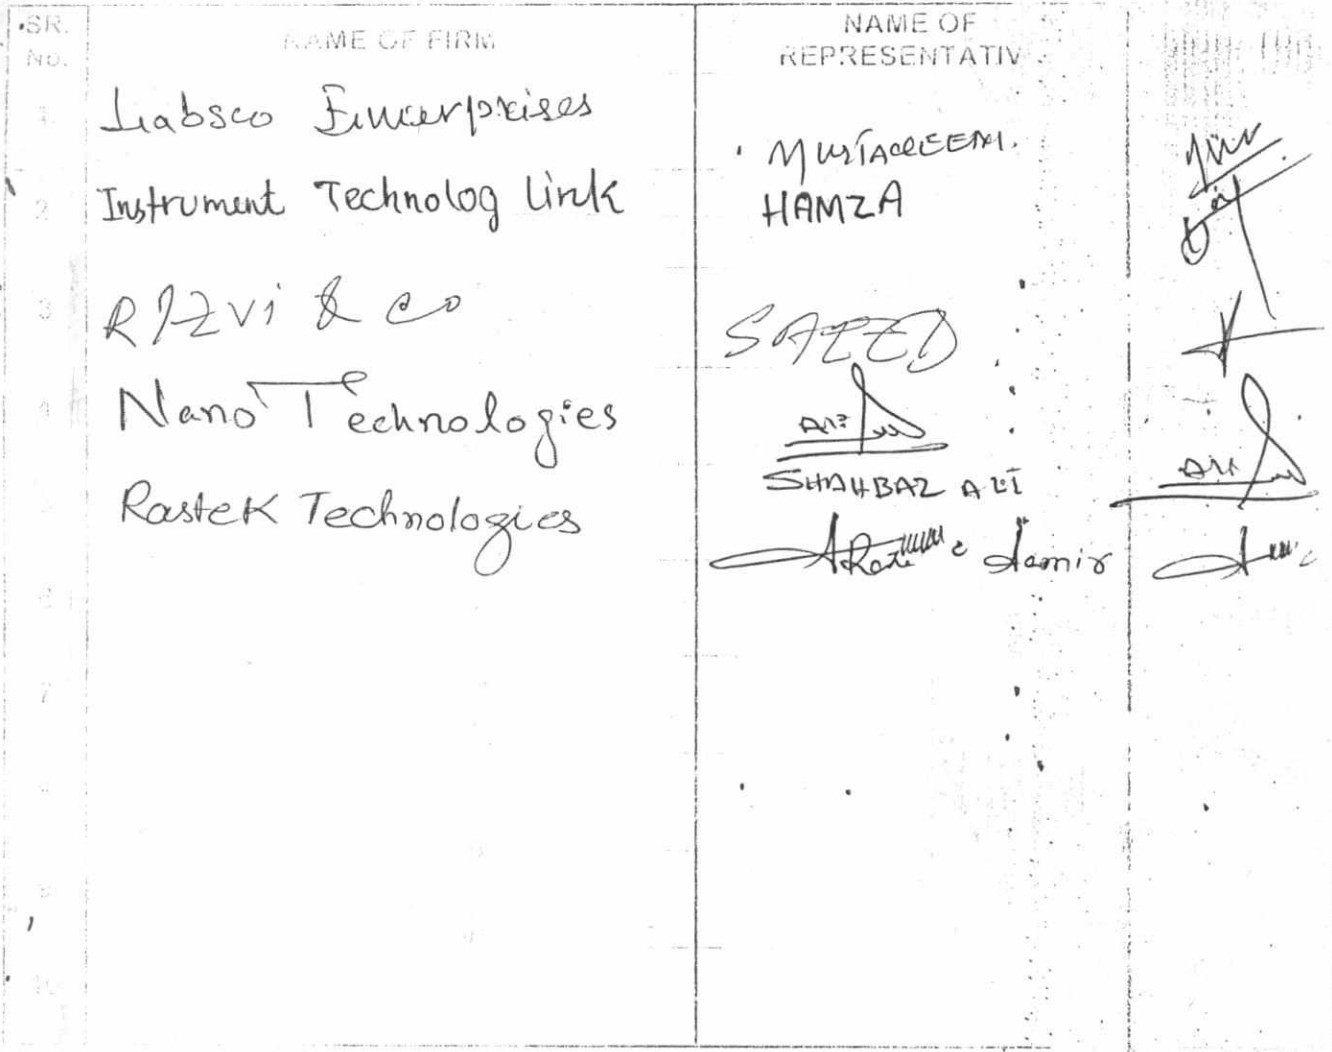 SR. No. NAME OF FIRM NAME OF REPRESENTATIV
1. Labsco Enterprises MUSTAQEEM.
2 Instrument Technolog Link HAMZA
3 RIZVI & CO SAEED
4 Nano Technologies
SHAHBAZ ALI
Rastek Technologies Aamir
6
7
9
10